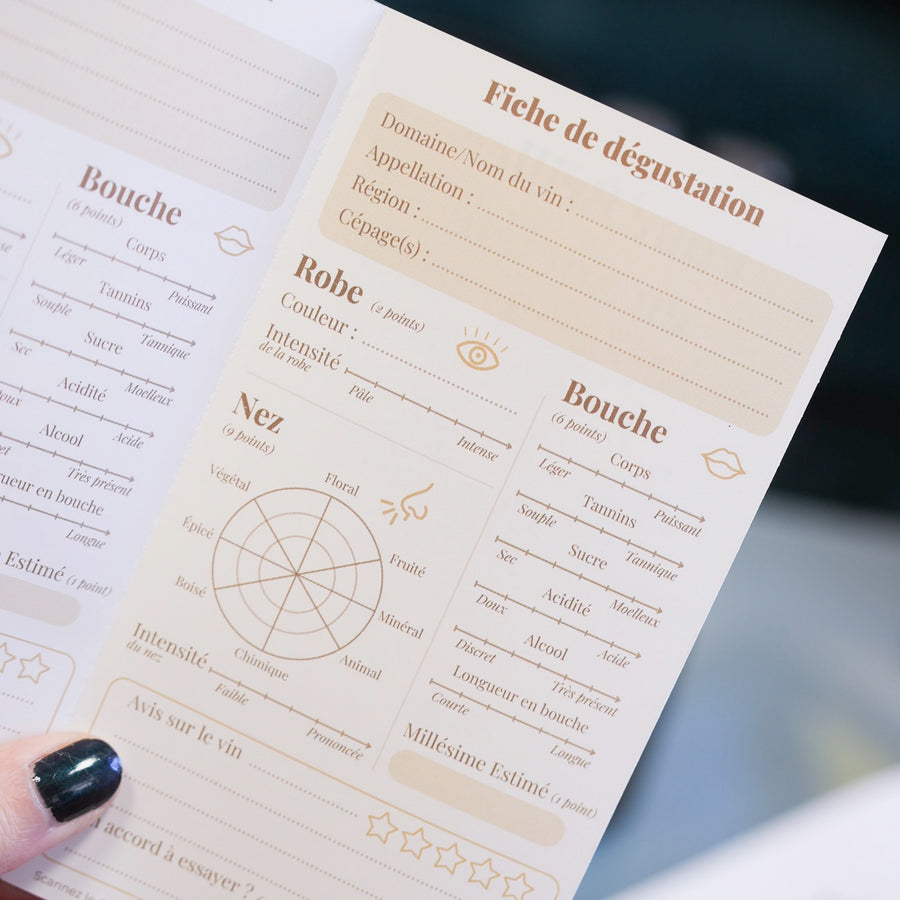 Bouche
(6 points)
Corps
Léger Puissant
Tannins
Souple Tannique
Sucre
Sec Moelleux
Acidité
Acide
Alcool
Très présent
en bouche
Longue
Estimé (1 point)
Fiche de dégustation
Domaine/Nom du vin :
Appellation :
Région :
Cépage(s) :
Robe (2 points)
Couleur :
Intensité
de la robe
Pâle Intense
Nez
(9 points)
Végétal Floral
Épicé Fruité
Boisé Minéral
Chimique Animal
Intensité
du nez
Faible Prononcée
Bouche
(6 points)
Corps
Léger Puissant
Tannins
Souple Tannique
Sucre
Sec Moelleux
Acidité
Doux Acide
Alcool
Discret Très présent
Longueur en bouche
Courte Longue
Millésime Estimé (1 point)
Avis sur le vin
accord à essayer ?
Scannez le